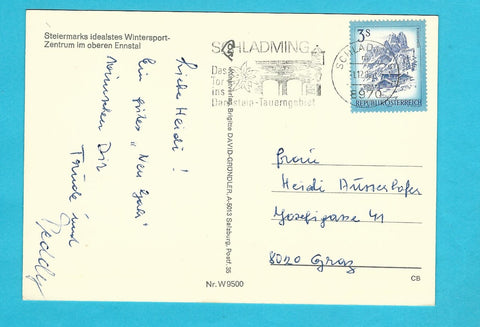 Steiermarks idealstes Wintersport-
Zentrum im oberen Ennstal
Liebe Heidi!
Ein gutes „Neu Jahr"
wünschen Dir
Trude und
Teddy
Monopolverlag, Brigitte DAVID-GRÜNDLER, A-5013 Salzburg, Postf. 35
SCHLADMING
Das
Tor
ins
Dachstein-Tauerngebiet
SCHLAD
8970
3s
REPUBLIK ÖSTERREICH
Frau
Heidi Ausserhofer
Josefigasse 41
8020 Graz
Nr. W 9500
CB